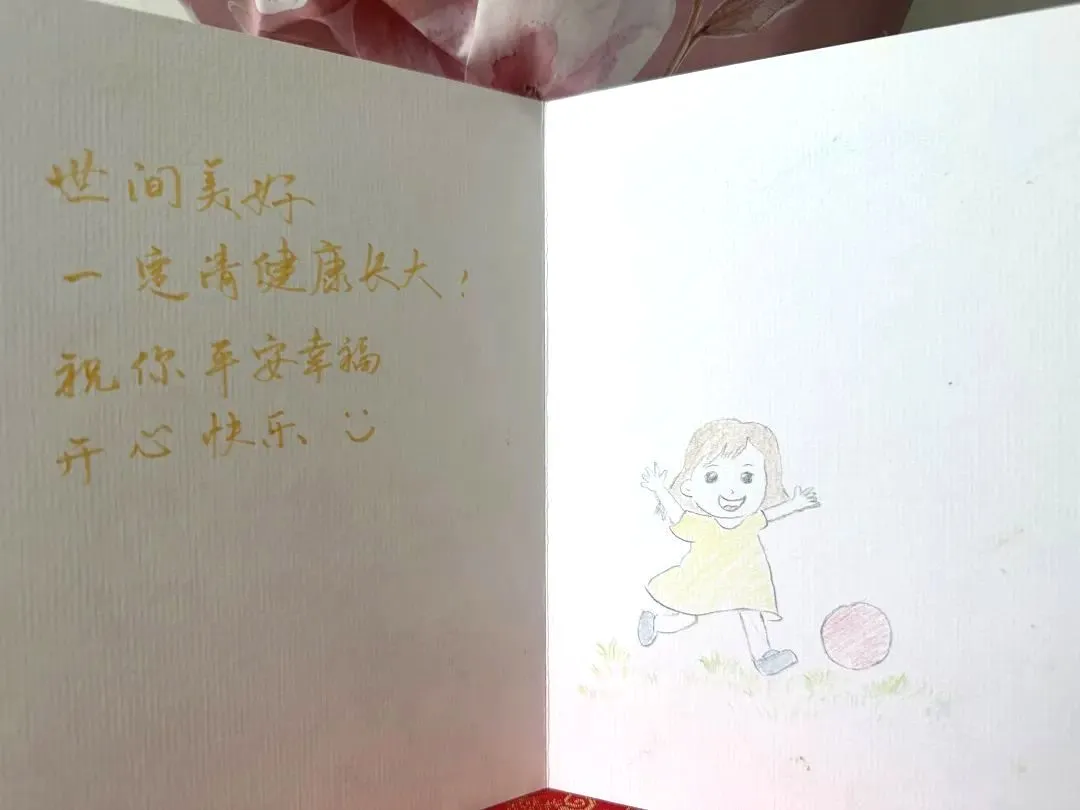 世间美好
一定请健康长大！
祝你平安幸福
开心快乐